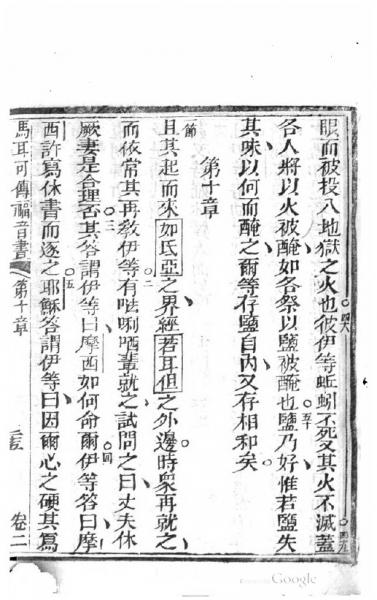 眼而被投入地獄之火也四八彼伊等蚯蚓不死又其火不滅四九蓋
各人將以火被醃如各祭以鹽被醃也五十鹽乃好惟若鹽失
其味以何而醃之爾等存鹽自內又存相和矣
第十章
節且其起而來如氐亞之界經若耳但之外邊時眾再就之
而依常其再教伊等二有㖿唎哂輩就之試問之曰丈夫休
厥妻是合理否三其答謂伊等曰摩西如何命爾四伊等答曰摩
西許寫休書而逐之五耶穌答謂伊等曰因爾心之硬其寫
馬耳可傳福音書 第十章 卷二
Google